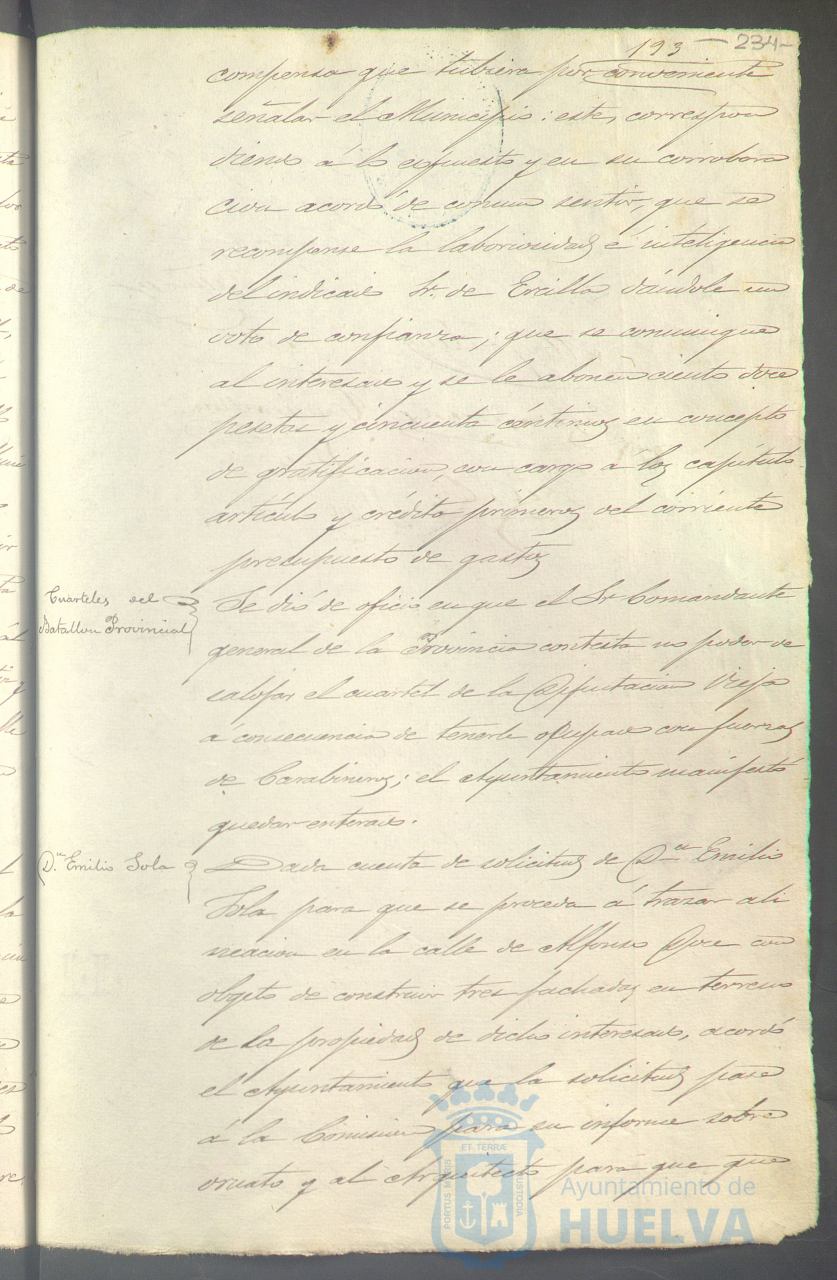 193 - 234-
compensa que tubiera por conveniente
señalar el Municipio: este, correspon
diendo á lo espuesto y en su corrobora
cion acordó de comun sentir, que se
recompense la laboriosidad é inteligencia
del indicado Sr. de Ercilla dándole un
voto de confianza; que se comunique
al interesado y se le abonen ciento doce
pesetas y cincuenta céntimos en concepto
de gratificacion, con cargo a los capítulo
artículo y crédito primeros del corriente
presupuesto de gastos
Cuarteles del
Batallon Provincial
Se dió de oficio en que el Sr Comandante
general de la Provincia contesta no poder de
salojar el cuartel de la Diputacion Vieja
á consecuencia de tenerle ocupado con fuerzas
de Carabineros; el Ayuntamiento manifestó
quedar enterado.
Dn Emilio Sola
Dada cuenta de solicitud de Dn Emilio
Sola para que se proceda á trazar ali
neacion en la calle de Alfonso Doce con
objeto de construir tres fachadas en terreno
de la propiedad de dicho interesado, acordó
el Ayuntamiento que la solicitud pase
á la Comision para su informe sobre
ornato y al Arquitecto para que que
PORTUS MARIS ET TERRÆ CUSTODIA
Ayuntamiento de
HUELVA